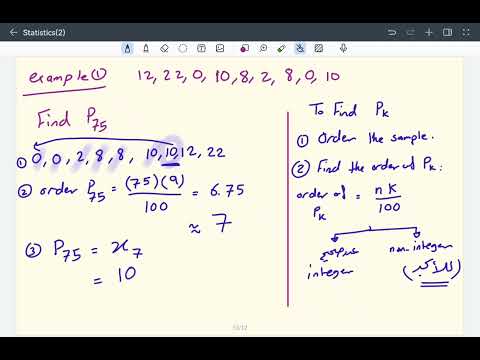 Statistics(2)
example ① 12, 22, 0, 10, 8, 2, 8, 0, 10
Find P75
① 0, 0, 2, 8, 8, 10, 10, 12, 22
② order P75 = (75)(9) / 100 = 6.75
≈ 7
③ P75 = x7
= 10
To Find Pk
① Order the sample.
② Find the order of Pk:
order of Pk = n k / 100
integer
non-integer
(للأكبر)
13/32